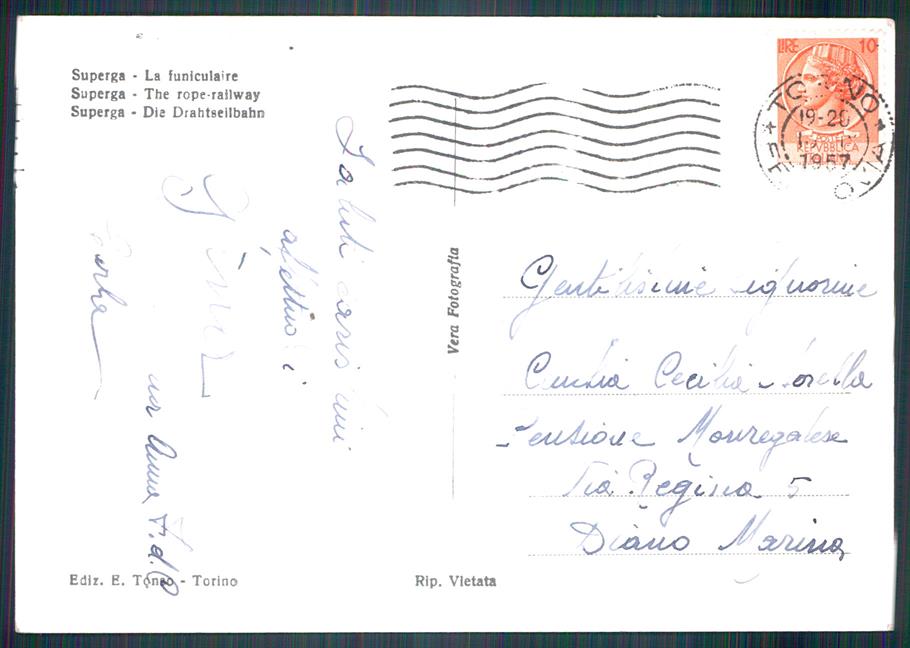 Superga - La funiculaire
Superga - The rope-railway
Superga - Die Drahtseilbahn
LIRE 10
POSTE
REPVBBLICA
TORINO
19-20
1957
FERROVIA
Saluti carissimi
affettuosi
Anna
Vera Fotografia
Gentilissime Signorine
Cecilia Sorella
Pensione Monregalese
Via Regina 5
Diano Marina
Ediz. E. Tonso - Torino
Rip. Vietata